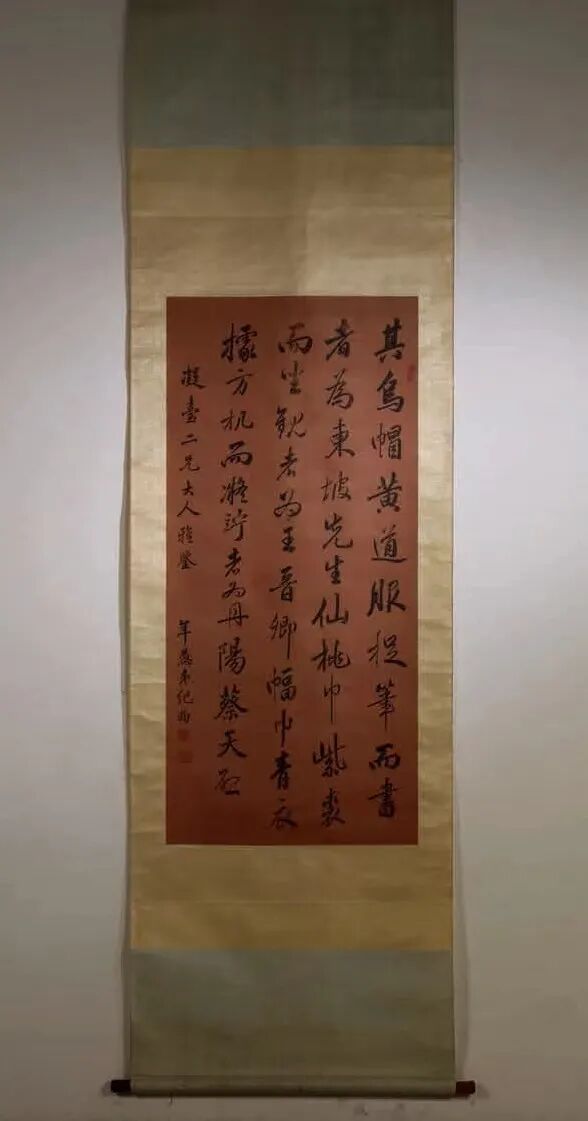 其烏帽黃道服捉筆而書
者為東坡先生仙桃巾紫裘
而坐觀者為王晉卿幅巾青衣
據方机而凝竚者為丹陽蔡天啟
凝臺二兄大人雅鑒
年愚弟紀昀